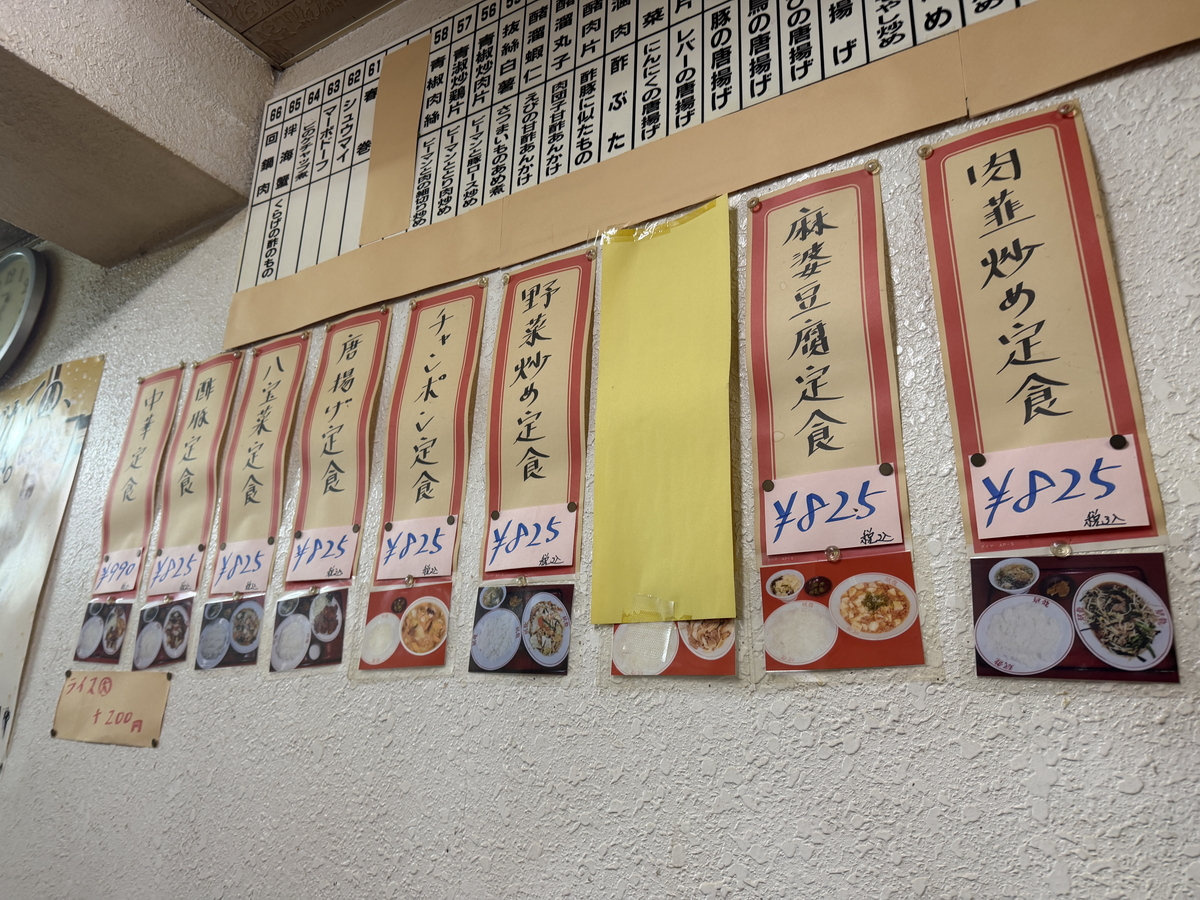 58 青椒肉絲 ピーマンと肉の細切り炒め
57 青椒炒鶏片 ピーマンととり肉炒め
56 青椒炒肉片 ピーマンと豚ロース炒め
抜絲白薯 さつまいものあめ煮
醋溜蝦仁 えびの甘酢あんかけ
醋溜丸子 肉団子甘酢あんかけ
醋肉片 酢豚に似たもの
肉 酢ぶた
菜 にんにくの唐揚げ
片 レバーの唐揚げ
豚の唐揚げ
の唐揚げ
の唐揚げ
揚げ
やし炒め
め
61 春巻
62 シュウマイ
63 マーボドーフ
64
65 拌海蜇 くらげの酢のもの
66 回鍋肉
肉韮炒め定食
¥825
税込
麻婆豆腐定食
¥825
税込
野菜炒め定食
¥825
税込
チャンポン定食
¥825
税込
唐揚げ定食
¥825
税込
八宝菜定食
¥825
酢豚定食
¥825
中華定食
¥990
ライス大
+200円